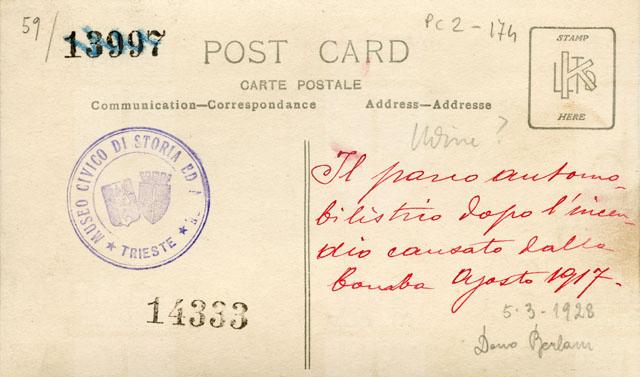 59/
13997
PC 2 - 174
POST CARD
CARTE POSTALE
Communication—Correspondance
Address—Addresse
STAMP
HERE
Udine?
MUSEO CIVICO DI STORIA ED
★ TRIESTE ★
Il parco automo-
bilistico dopo l'incen-
dio causato dalla
bomba Agosto 1917-
14333
5-3-1928
Dono